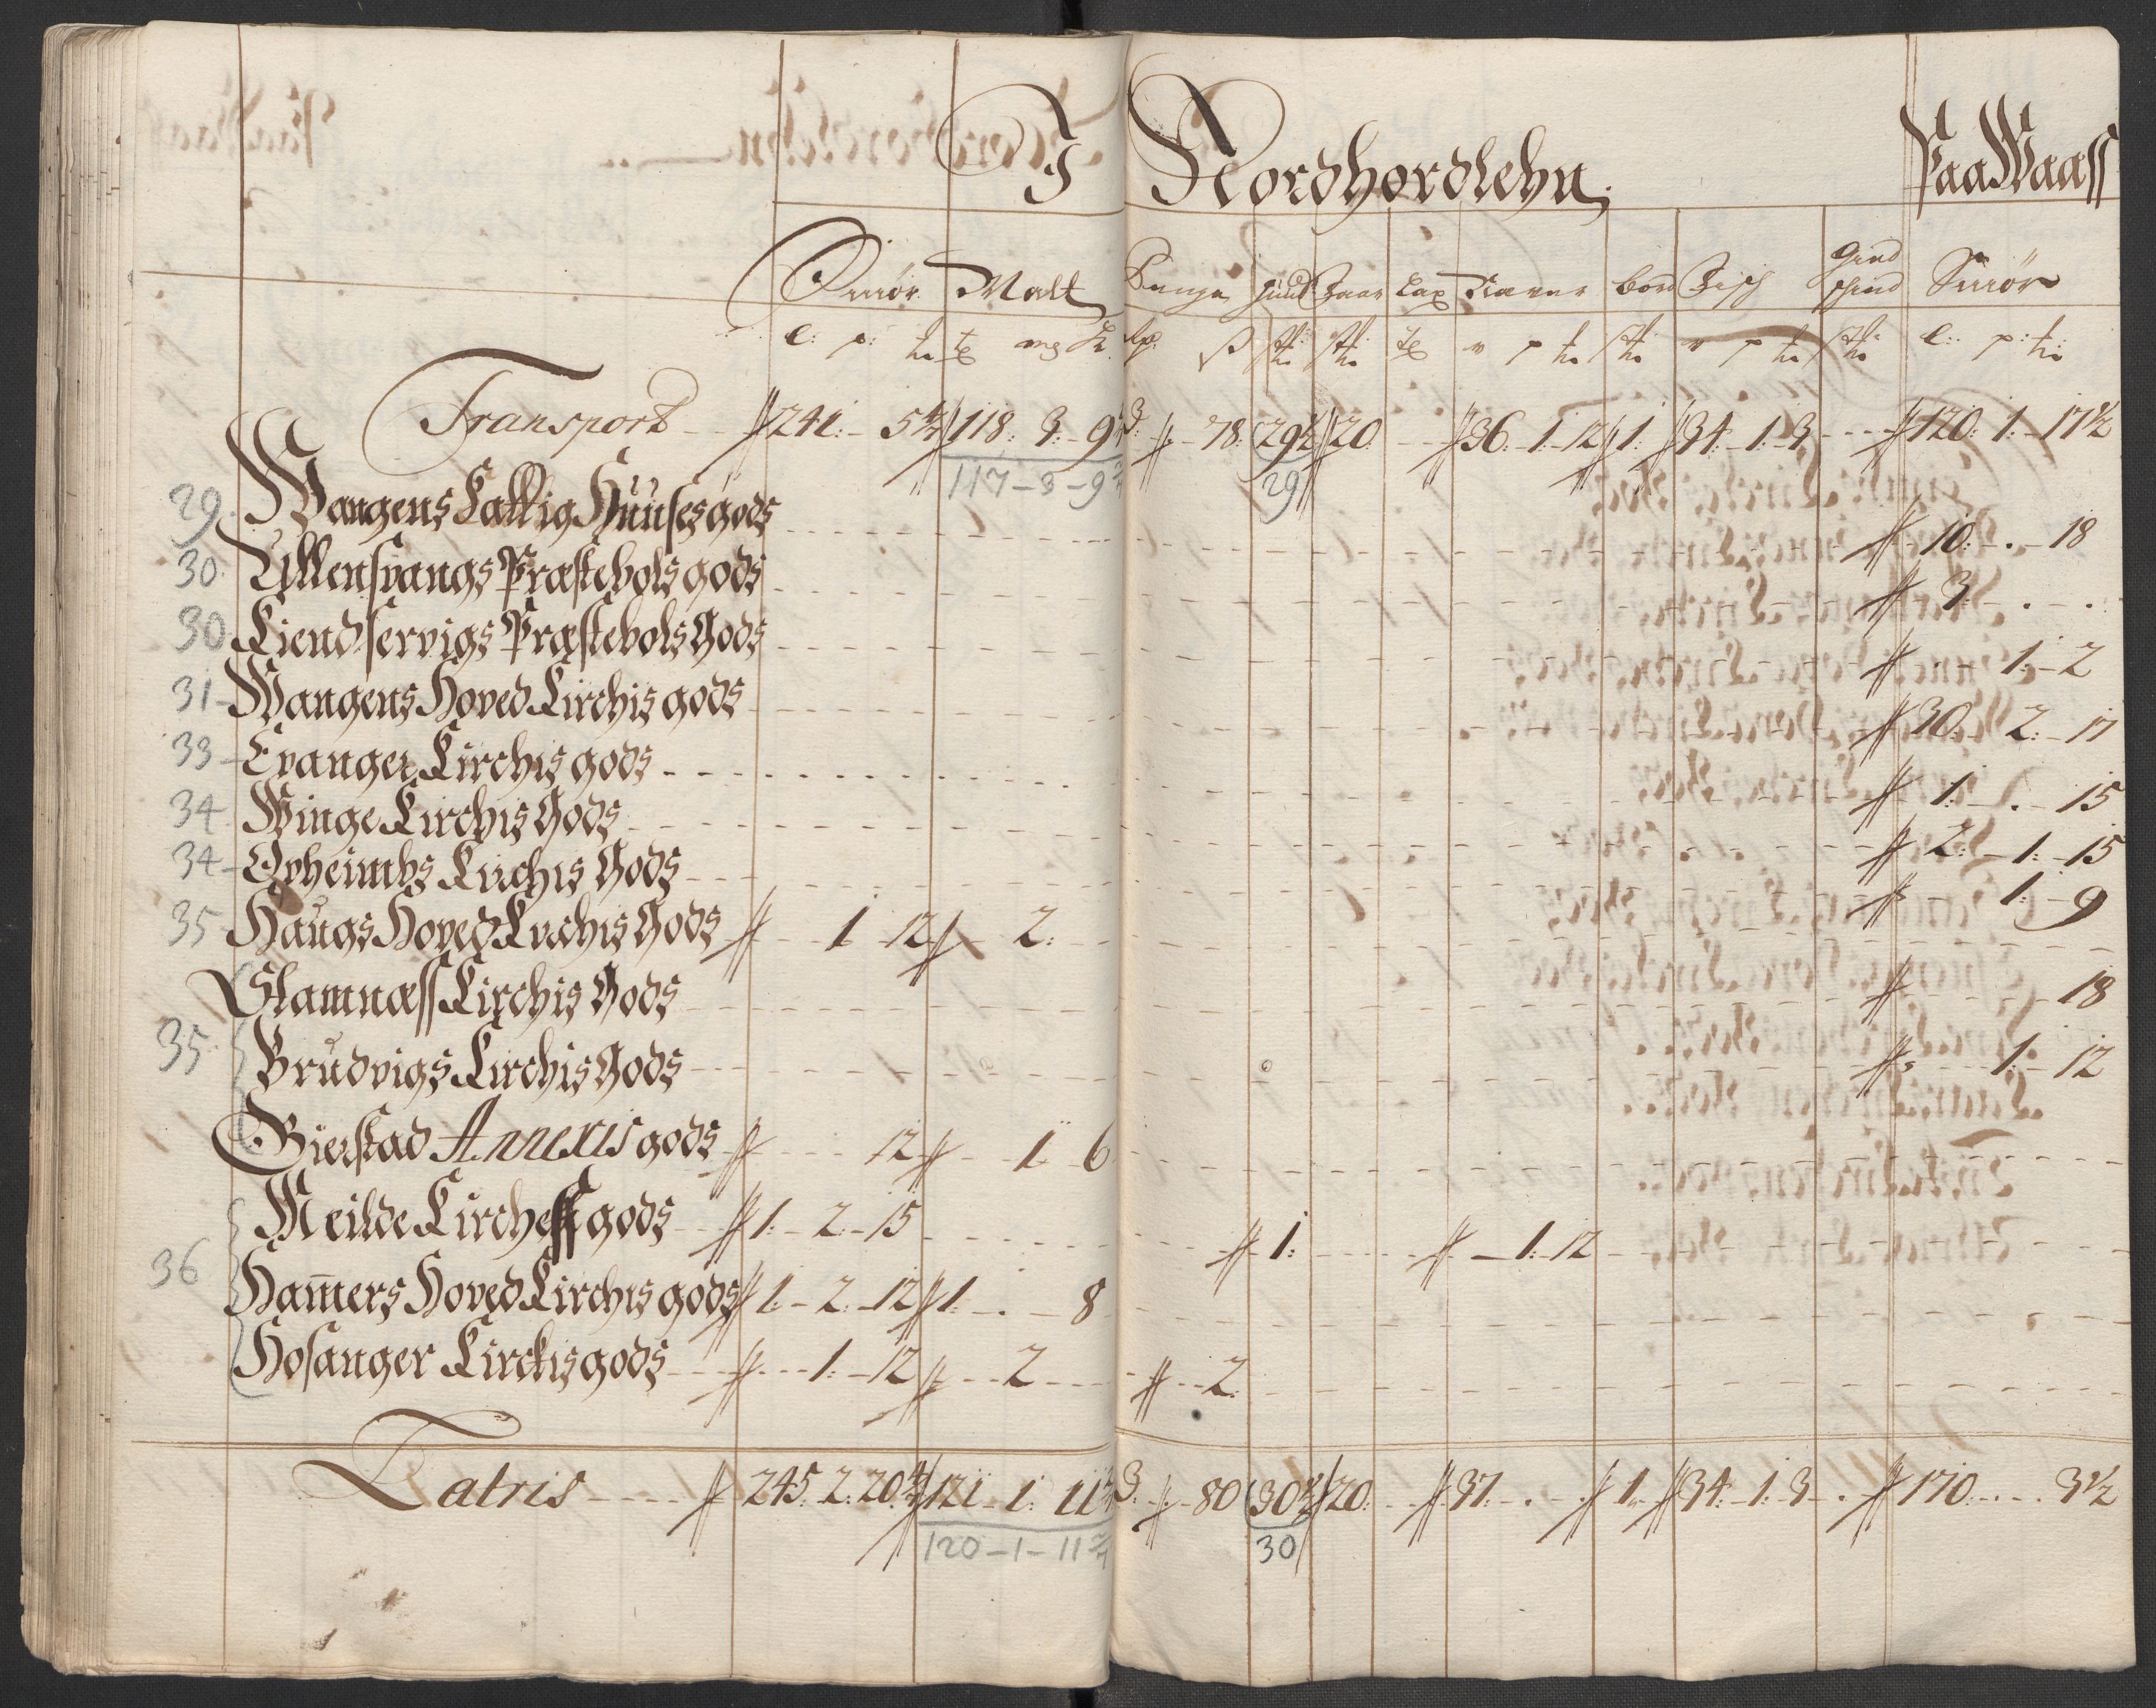 I Nordhordlehn. Paa Waass
Smør Malt Penge Huud Faar Lax Tiære bord Fisch Gied schind Smør
Transport 241: - 5 118: 3: - 9 3 78: 29½ 20 36. 1: 12 1: 34: 1: 3 120: 1: - 17½
117 - 3 - 9 29
29 Wangens Callig Huuses gods 10: . - 18
30 Ullensvangs Præstebols gods 3: . - .
30 Kiendservigs Præstebols Gods 1: - 2
31 - Wangens Hoved Kirchis gods 30: 2: - 17
33 - Evanger Kirchis gods 1: . - 15
34 Winge Kirchis Gods 2: - 1: - 15
34 - Opheimbs Kirchis Gods 1: - 9
35 Haugs Hoved Kirchis Gods 1 12 2:
Stamnæss Kirchis Gods 18
35 Brudvigs Kirchis Gods 1: - 12
Gierstad Annexis gods 12 1 6
Meilde Kirchess gods 1: - 2: - 15 1: 1: 12
36 Ham̄ers Hoved Kirchis gods 1: - 2: 12 1: . 8
Hosanger Kirckis gods 1: - 12 2 2:
Latris 245: 2: 20 121 - 1: 11 3 80 30½ 20: 37: . 1 34: 1: 3 . 170: . . 3½
120 - 1 - 11 30